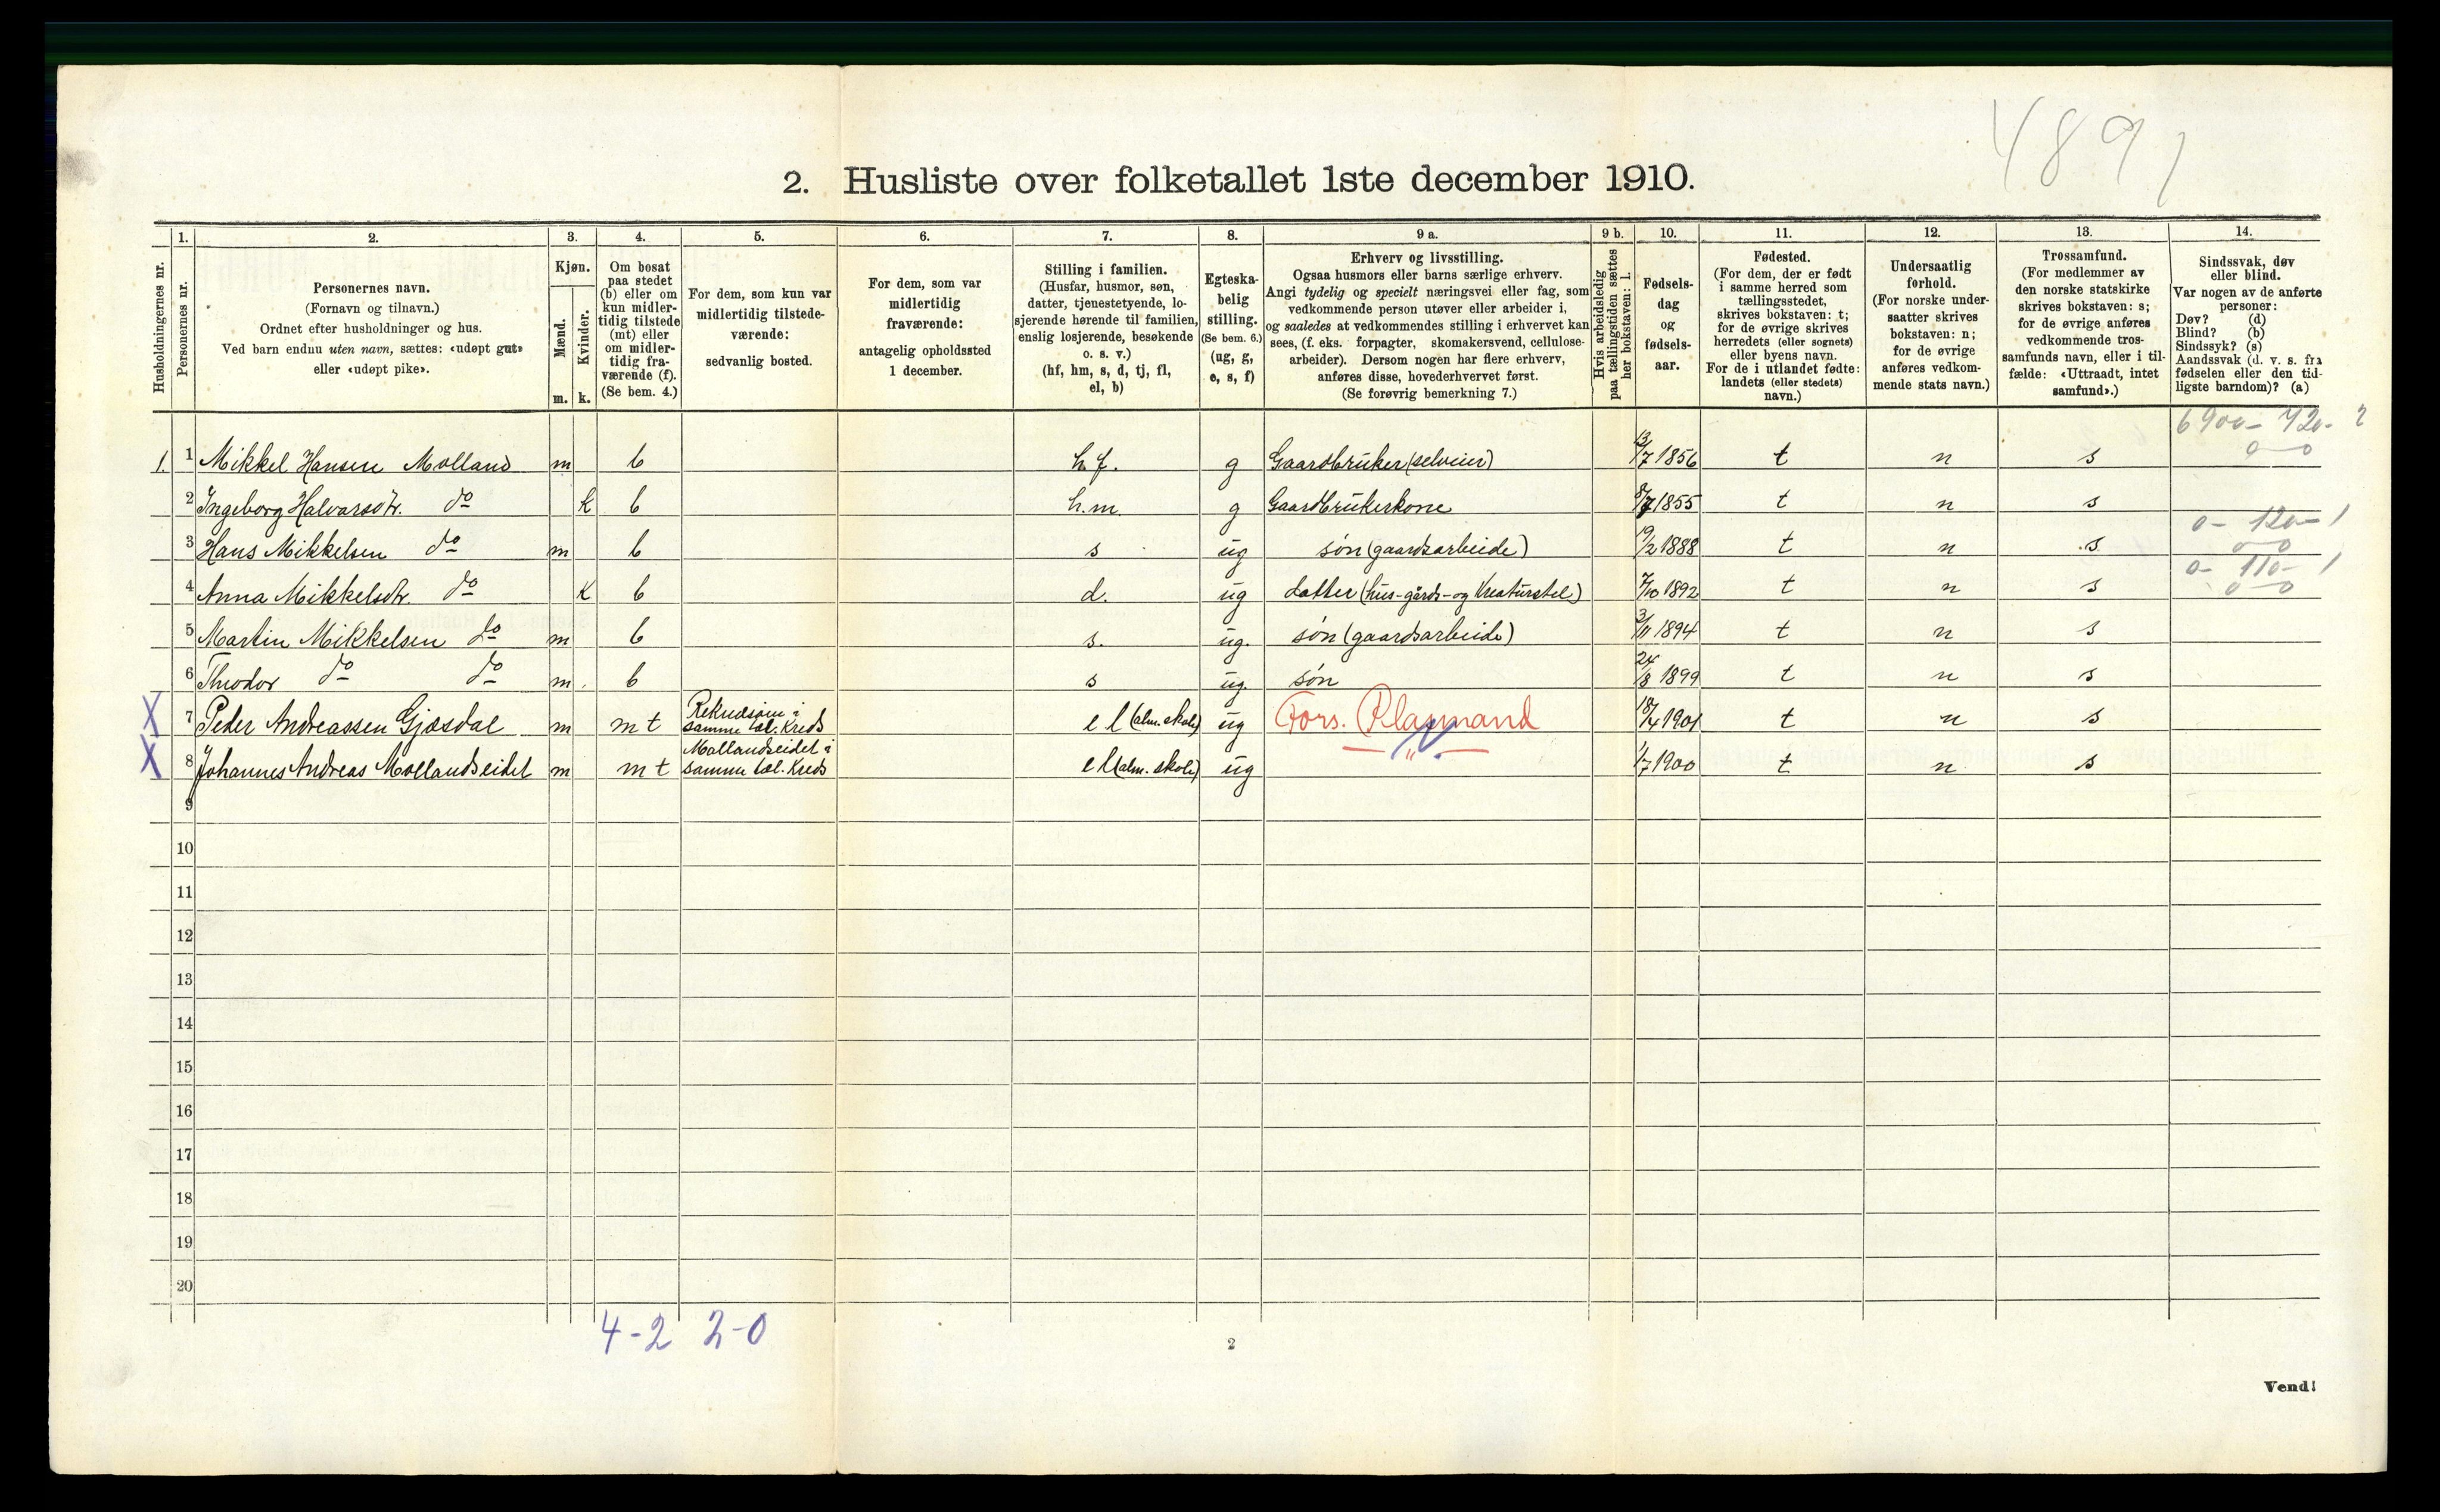 4891
2. Husliste over folketallet 1ste december 1910.
Husholdningernes nr.
1.
Personernes nr.
2.
Personernes navn.
(Fornavn og tilnavn.)
Ordnet efter husholdninger og hus.
Ved barn endnu uten navn, sættes: «udøpt gut»
eller «udøpt pike».
3.
Kjøn.
Mænd.
Kvinder.
m. k.
4.
Om bosat
paa stedet
(b) eller om
kun midler-
tidig tilstede
(mt) eller
om midler-
tidig fra-
værende (f).
(Se bem. 4.)
5.
For dem, som kun var
midlertidig tilstede-
værende:
sedvanlig bosted.
6.
For dem, som var
midlertidig
fraværende:
antagelig opholdssted
1 december.
7.
Stilling i familien.
(Husfar, husmor, søn,
datter, tjenestetyende, lo-
sjerende hørende til familien,
enslig losjerende, besøkende
o. s. v.)
(hf, hm, s, d, tj, fl,
el, b)
8.
Egteska-
belig
stilling.
(Se bem. 6.)
(ug, g,
e, s, f)
9 a.
Erhverv og livsstilling.
Ogsaa husmors eller barns særlige erhverv.
Angi tydelig og specielt næringsvei eller fag, som
vedkommende person utøver eller arbeider i,
og saaledes at vedkommendes stilling i erhvervet kan
sees, (f. eks. forpagter, skomakersvend, cellulose-
arbeider). Dersom nogen har flere erhverv,
anføres disse, hovederhvervet først.
(Se forøvrig bemerkning 7.)
9 b.
Hvis arbeidsledig
paa tællingstiden sættes
her bokstaven: l.
10.
Fødsels-
dag
og
fødsels-
aar.
11.
Fødested.
(For dem, der er født
i samme herred som
tællingsstedet,
skrives bokstaven: t;
for de øvrige skrives
herredets (eller sognets)
eller byens navn.
For de i utlandet fødte:
landets (eller stedets)
navn.)
12.
Undersaatlig
forhold.
(For norske under-
saatter skrives
bokstaven: n;
for de øvrige
anføres vedkom-
mende stats navn.)
13.
Trossamfund.
(For medlemmer av
den norske statskirke
skrives bokstaven: s;
for de øvrige anføres
vedkommende tros-
samfunds navn, eller i til-
fælde: «Uttraadt, intet
samfund».)
14.
Sindssvak, døv
eller blind.
Var nogen av de anførte
personer:
Døv? (d)
Blind? (b)
Sindssyk? (s)
Aandssvak (d. v. s. fra
fødselen eller den tid-
ligste barndom)? (a)
6900- 420- 2
0-0
1. 1 Mikkel Hansen Molland m b h.f. g Gaardbruker (selveier) 13/7 1856 t n s
2 Ingeborg Halvarsdtr. do k b h.m. g Gaardbrukerkone 8/7 1855 t n s
0- 120- 1
0-0
3 Hans Mikkelsen do m b s ug søn (gaardsarbeide) 19/2 1888 t n s
0- 110- 1
0-0
4 Anna Mikkelsdtr. do k b d. ug datter (hus-gårds-og Kreaturstel) 7/10 1892 t n s
5 Martin Mikkelsen do m b s. ug. søn (gaardsarbeide) 3/11 1894 t n s
6 Theodor do do m. b s ug. søn 24/8 1899 t n s
X 7 Peder Andreassen Gjæsdal m mt samme tæl. Kreds el (alm. skole) ug Fors. 18/4 1901 t n s
X 8 Johannes Andreas Mollandseidet m mt Mollandseidet i samme tæl. Kreds el (alm. skole) ug " 1/7 1900 t n s
9
10
11
12
13
14
15
16
17
18
19
20
4-2 2-0
2
Vend!